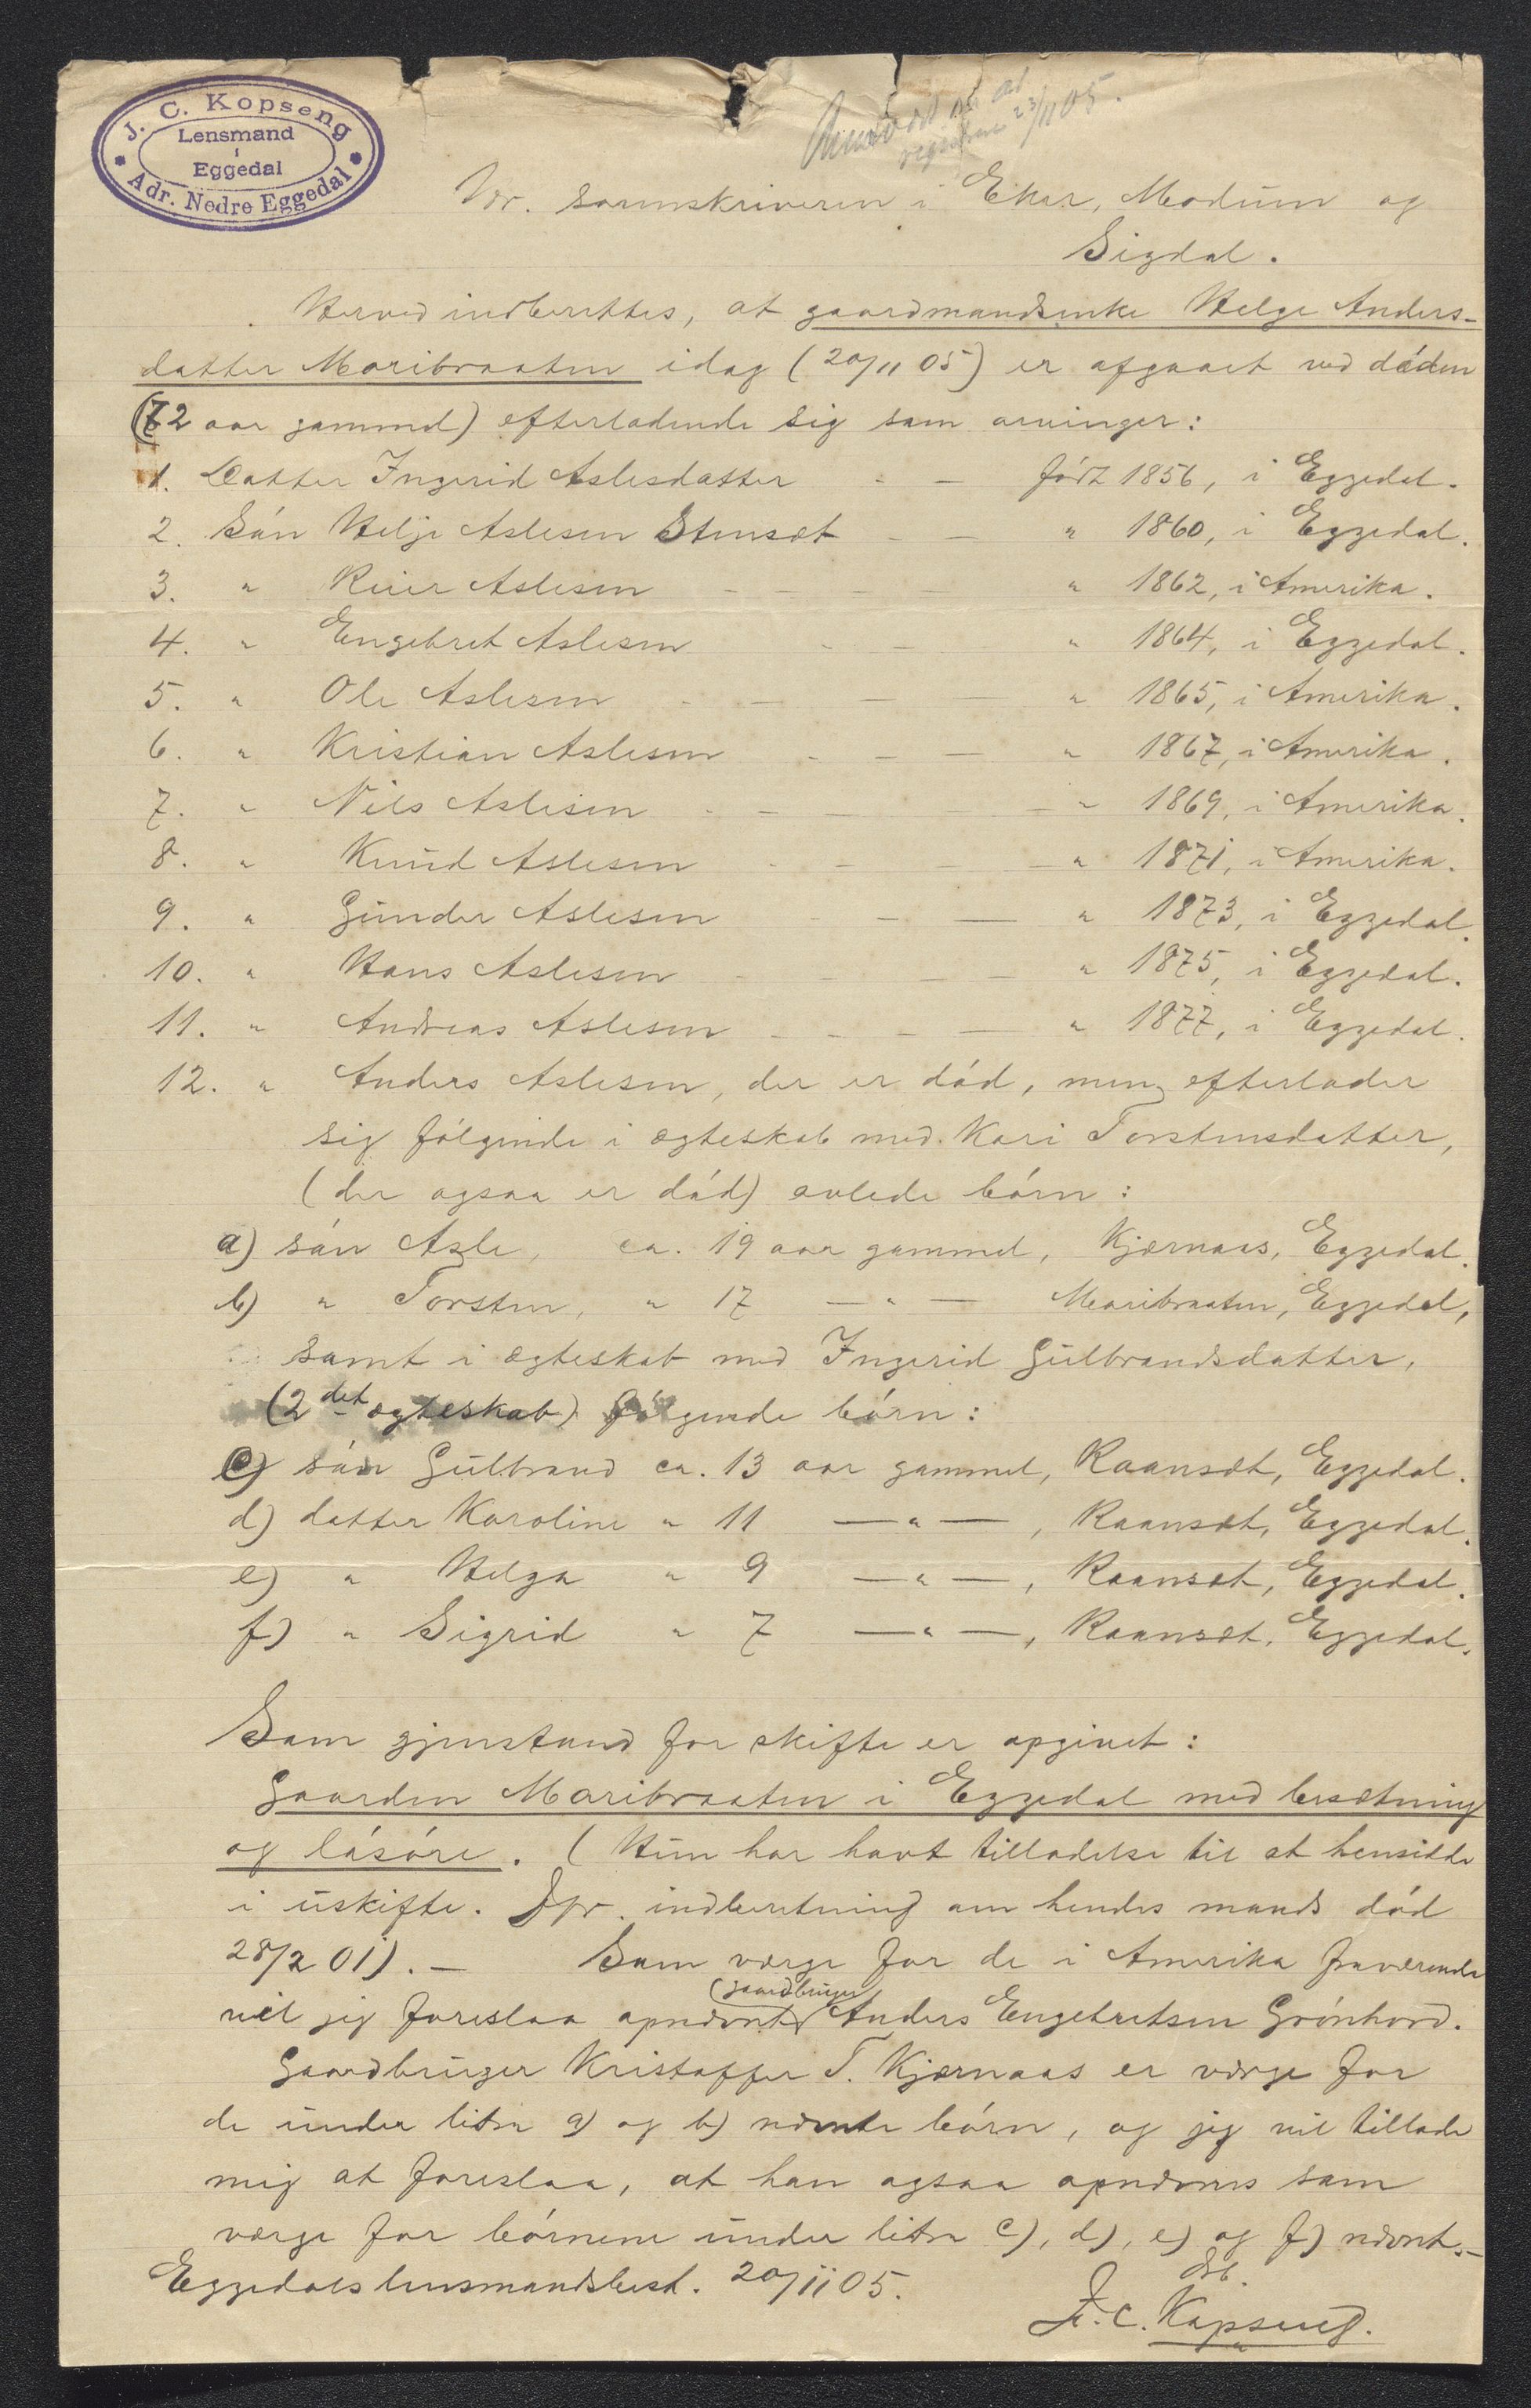 J. C. Kopseng
Lensmand
i
Eggedal
Adr. Nedre Eggedal
23/11 05.
Hr. sorenskriveren i Eker, Modum og
Sigdal.
Herved indberettes, at gaardmandsenke Helge Anders-
datter Maribraaten idag (20/11 05) er afgaaet ved døden
(72 aar gammel) efterladende sig som arvinger:
1. Datter Ingerid Aslesdatter - - født 1856, i Eggedal.
2. Søn Helge Aslesen Stensæt - - " 1860, i Eggedal.
3. " Reier Aslesen - - - - " 1862, i Amerika.
4. " Engebret Aslesen - - " 1864, i Eggedal.
5. " Ole Aslesen - - - - " 1865, i Amerika.
6. " Kristian Aslesen - - - " 1867, i Amerika.
7. " Nils Aslesen - - - - " 1869, i Amerika.
8. " Knud Aslesen - - - - " 1871, i Amerika.
9. " Gunder Aslesen - - - " 1873, i Eggedal.
10. " Hans Aslesen - - - - " 1875, i Eggedal.
11. " Andreas Aslesen - - - - " 1877, i Eggedal.
12. " Anders Aslesen, der er død, men efterlader
sig følgende i ægteskab med Kari Torstensdatter,
(der ogsaa er død) avlede børn:
a) søn Asle, ca. 19 aar gammel, Kjærnaas, Eggedal.
b) " Torsten, " 17 — " — Maribraaten, Eggedal,
samt i ægteskab med Ingerid Gulbrandsdatter,
(2det ægteskab) følgende børn:
c) søn Gulbrand ca. 13 aar gammel, Raansæt, Eggedal.
d) datter Karoline " 11 — " —, Raansæt, Eggedal.
e) " Helga " 9 — " —, Raansæt, Eggedal.
f) " Sigrid " 7 — " —, Raansæt, Eggedal.
Som gjenstand for skifte er opgivet:
Gaarden Maribraaten i Eggedal med besætning
og løsøre. (Hun har havt tilladelse til at hensidde
i uskifte. Jfr. indberetning om hendes mands død
28/2 01). — Som værge for de i Amerika fraværende
(gaardbruger
vil jeg foreslaa opnævnt Anders Engebretsen Grønhovd.
Gaardbruger Kristoffer T. Kjærnaas er værge for
de under litra a) og b) nævnte børn, og jeg vil tillade
mig at foreslaa, at han ogsaa opnævnes som
værge for børnene under litra c), d), e) og f) nævnt. —
Eggedals lensmandsbest. 20/11 05.
Ærb.
J. C. Kopseng.